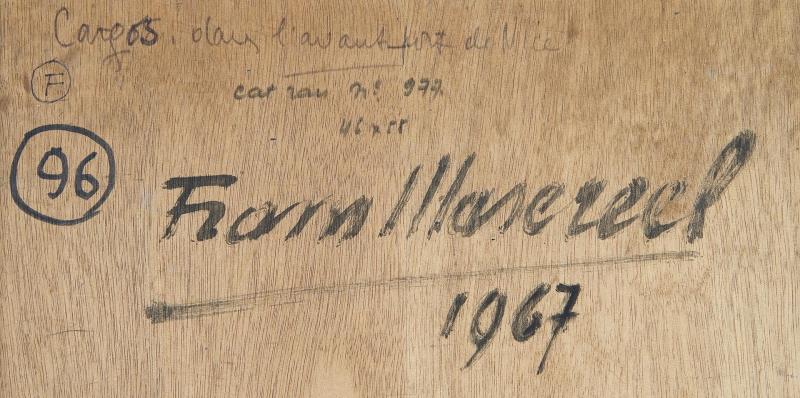 Cargos. dans l'avant port de Nice
F
cat rais nº 977
46 x 55
96
Frans Masereel
1967